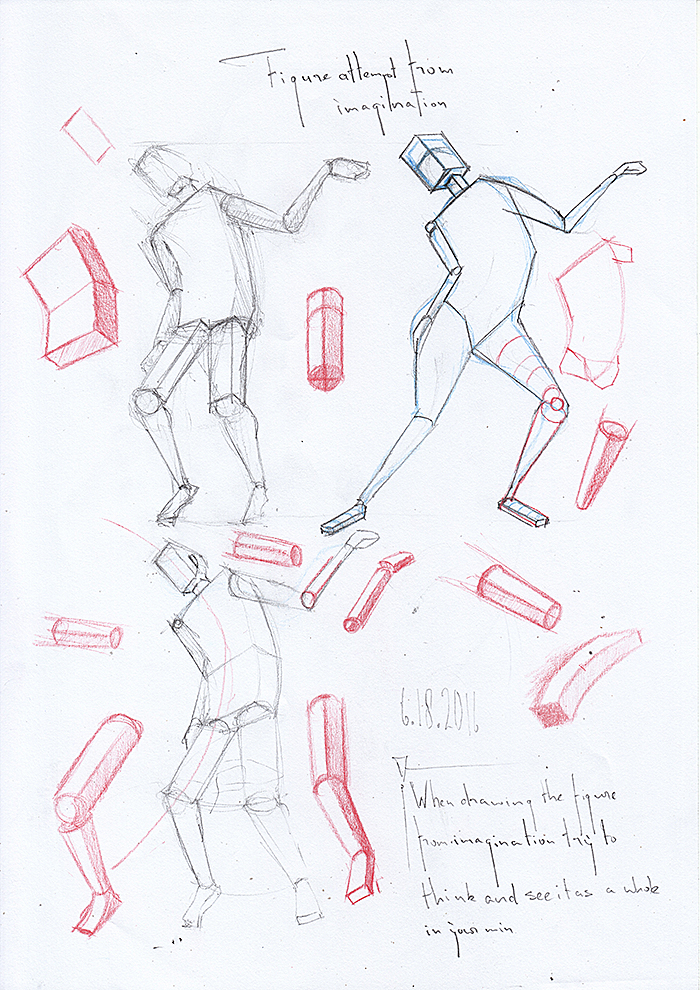 Figure attempt from
imagination
6.18.2016
When drawing the figure
from imagination try to
think and see it as a whole
in your min